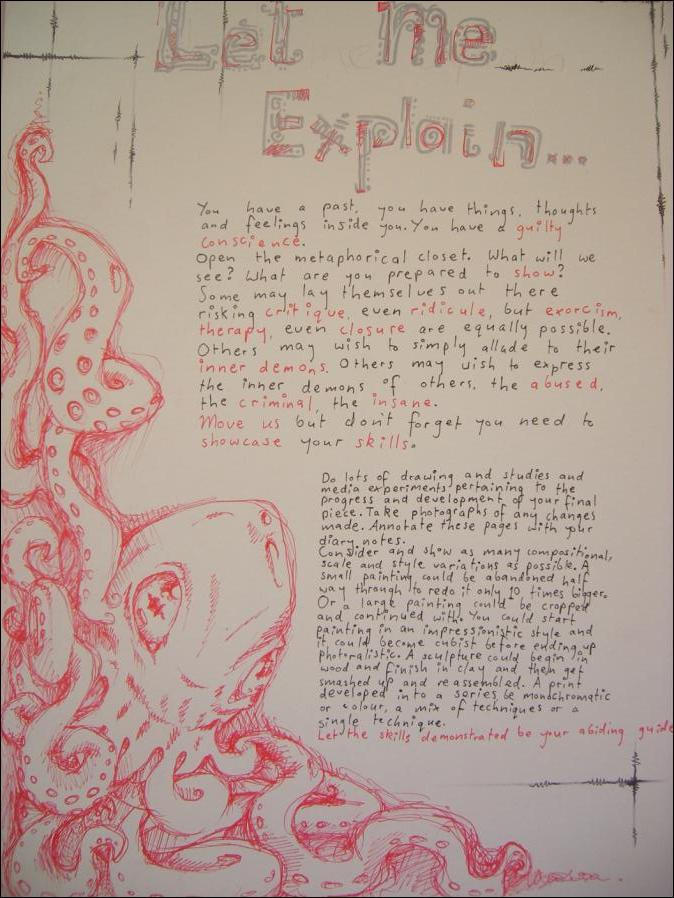 Let Me
Explain...
You have a past, you have things, thoughts
and feelings inside you. You have a guilty
conscience.
Open the metaphorical closet. What will we
see? What are you prepared to show?
Some may lay themselves out there
risking critique, even ridicule, but exorcism,
therapy, even closure are equally possible.
Others may wish to simply allude to their
inner demons. Others may wish to express
the inner demons of others, the abused,
the criminal, the insane.
Move us but don't forget you need to
showcase your skills.
Do lots of drawing and studies and
media experiments pertaining to the
progress and development of your final
piece. Take photographs of any changes
made. Annotate these pages with your
diary notes.
Consider and show as many compositional,
scale and style variations as possible. A
small painting could be abandoned half
way through to redo it only 10 times bigger.
Or a large painting could be cropped
and continued with. You could start
painting in an impressionistic style and
it could become cubist before ending up
photoralistic. A sculpture could begin in
wood and finish in clay and then get
smashed up and reassembled. A print
developed into a series, be monochromatic
or colour, a mix of techniques or a
single technique.
Let the skills demonstrated be your abiding guide